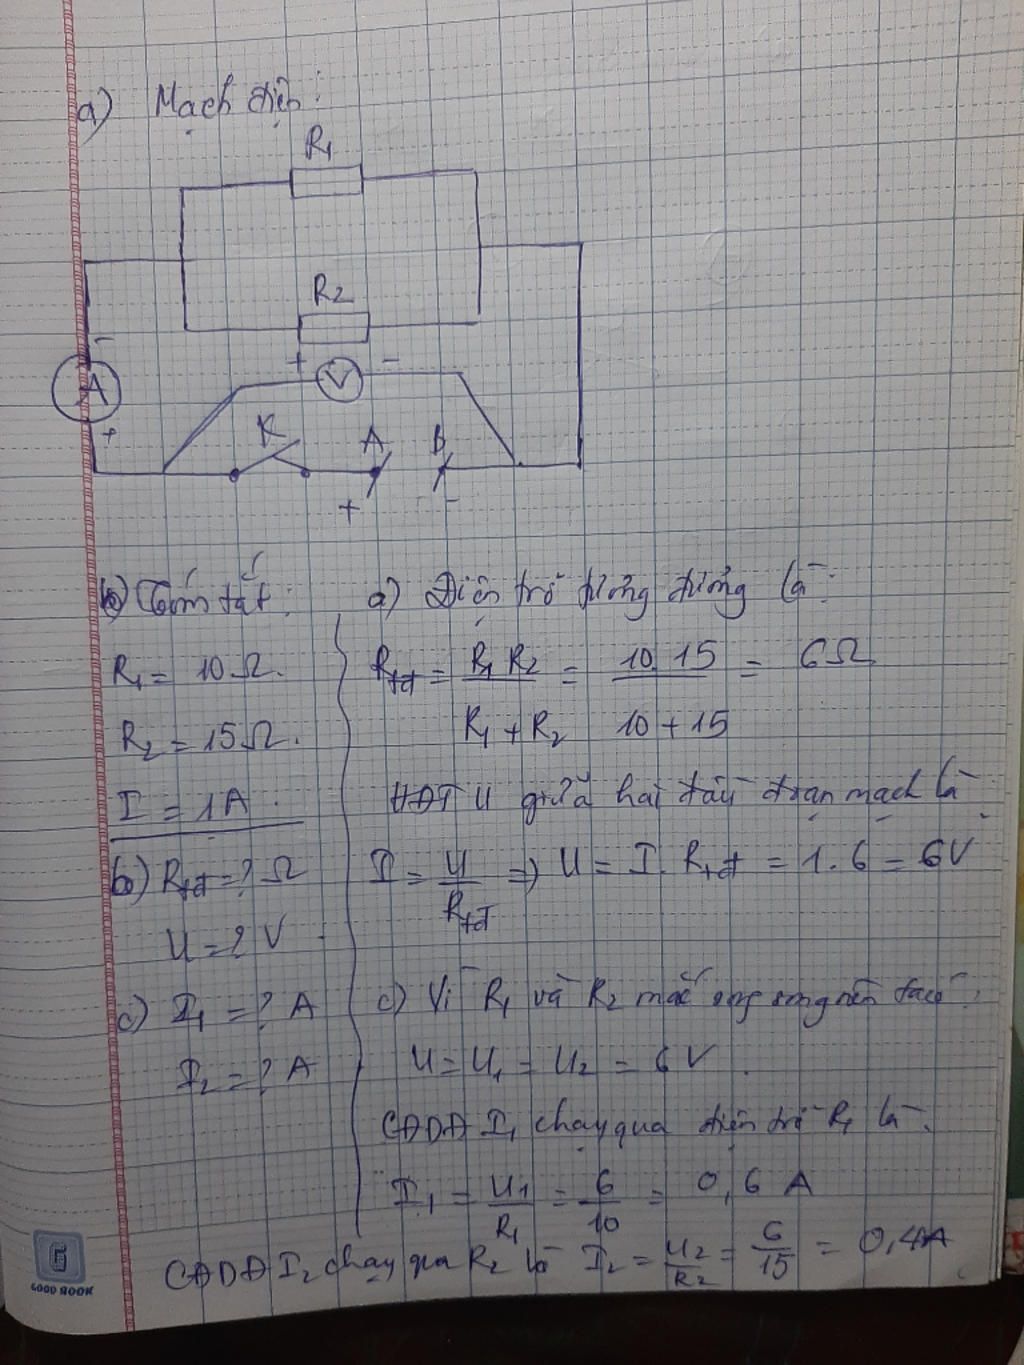 a) Mạch điện:
R1
R2
+ V -
-
A
+
K A B
+ -
b) Tóm tắt:
R1 = 10Ω.
R2 = 15Ω.
I = 1A.
b) Rtđ = ? Ω
U = ? V
c) I1 = ? A
I2 = ? A
a) Điện trở tương đương là:
Rtđ = R1.R2 / R1 + R2 = 10.15 / 10 + 15 = 6Ω
HĐT U giữa hai đầu đoạn mạch là
I = U / Rtđ => U = I.Rtđ = 1.6 = 6V
c) Vì R1 và R2 mắc song song nên ta có:
U = U1 = U2 = 6V.
CĐDĐ I1 chạy qua điện trở R1 là:
I1 = U1 / R1 = 6 / 10 = 0,6 A
CĐDĐ I2 chạy qua R2 là I2 = U2 / R2 = 6 / 15 = 0,4A
G
GOOD BOOK